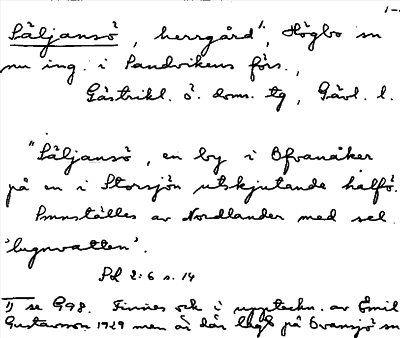 1-2
Säljansö, herrgård 1), Högbo sn
nu ing. i Sandvikens förs.,
Gästrikl. ö. doms. tg, Gävl. l.
"Säljansö, en by i Ofvanåker
på en i Storsjön utskjutande halfö.
Smnställes av Nordlander med sel
'lugnvatten'.
Sd 2:6 s. 14
1) se G98. Finnes ock i uppteckn. av Emil
Gustavsson 1929 men är där lagt på Ovansjö sn